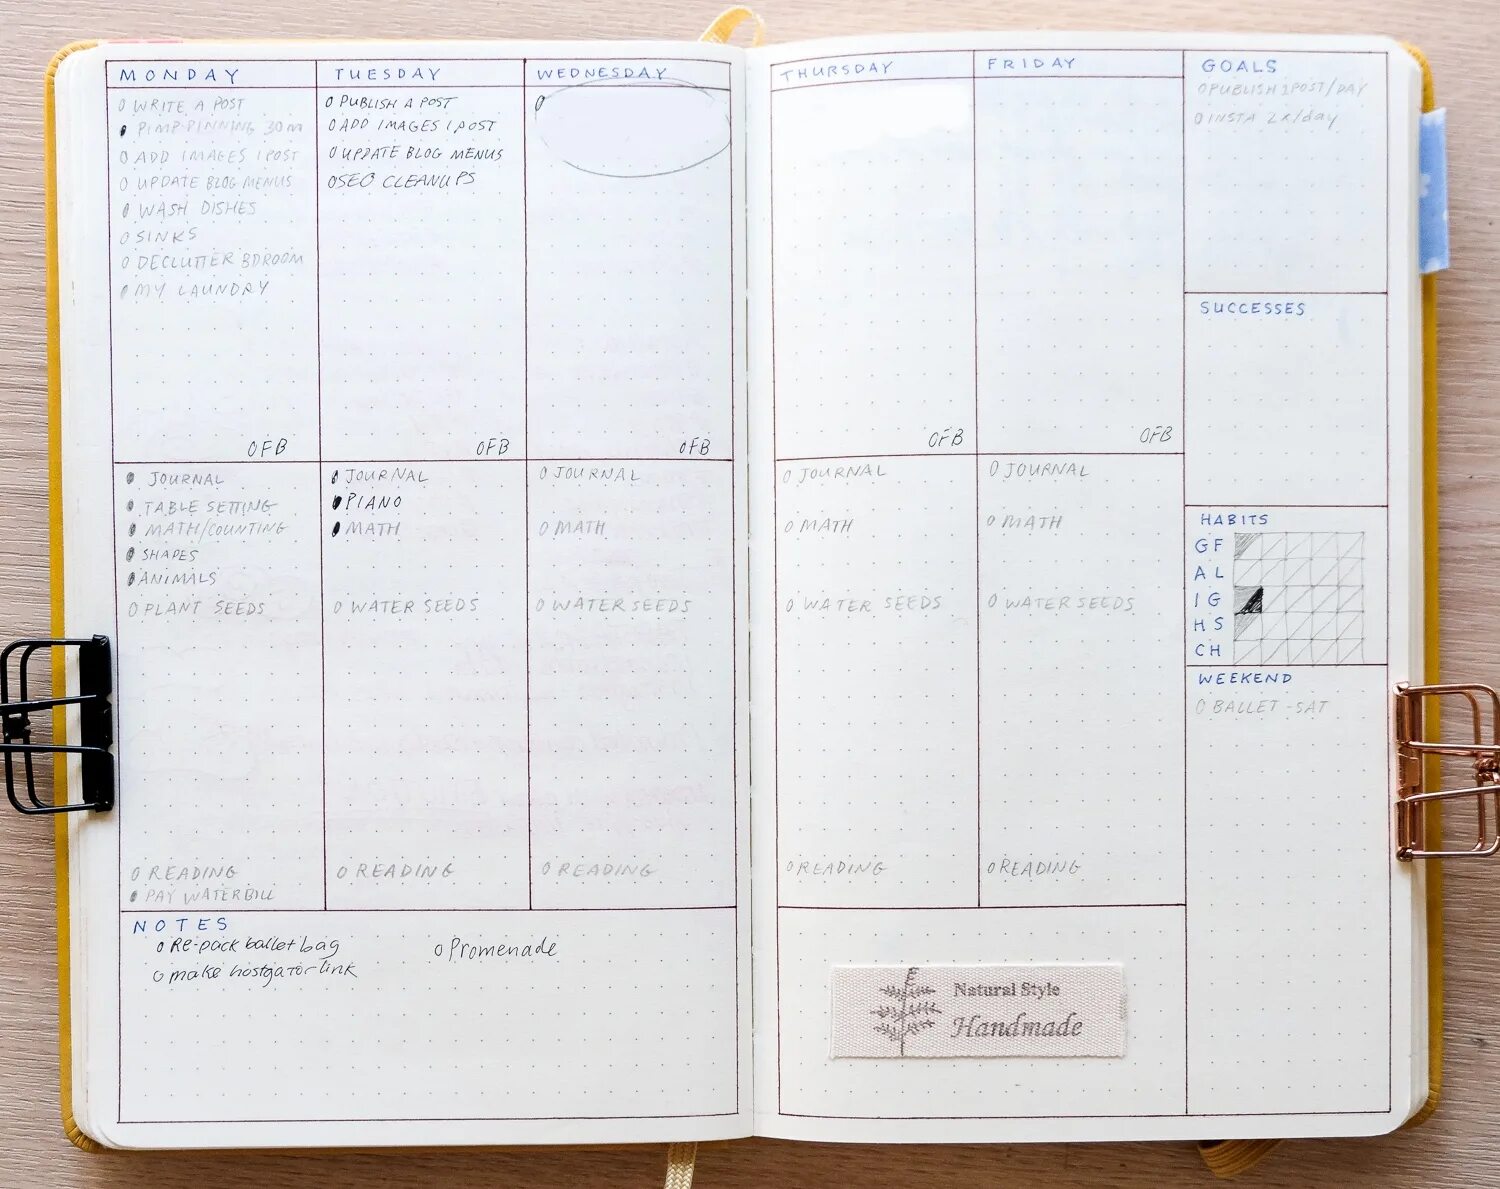 MONDAY
O WRITE A POST
PIMP PINNING 30m
O ADD IMAGES 1 POST
O UPDATE BLOG MENUS
O WASH DISHES
O SINKS
O DECLUTTER BDROOM
O MY LAUNDRY
O FB
JOURNAL
TABLE SETTING
MATH/COUNTING
SHAPES
ANIMALS
O PLANT SEEDS
O READING
PAY WATERBILL
TUESDAY
O PUBLISH A POST
O ADD IMAGES 1 POST
O UPDATE BLOG MENUS
O SEO CLEANUPS
O FB
JOURNAL
PIANO
MATH
O WATER SEEDS
O READING
WEDNESDAY
O
O FB
O JOURNAL
O MATH
O WATER SEEDS
O READING
NOTES
O Re-pack ballet bag
O make hostgator link
O Promenade
THURSDAY
O FB
O JOURNAL
O MATH
O WATER SEEDS
O READING
FRIDAY
O FB
O JOURNAL
O MATH
O WATER SEEDS
O READING
GOALS
O PUBLISH 1 POST/DAY
O INSTA 2x/day
SUCCESSES
HABITS
GF
AL
IG
HS
CH
WEEKEND
O BALLET - SAT
Natural Style
Handmade